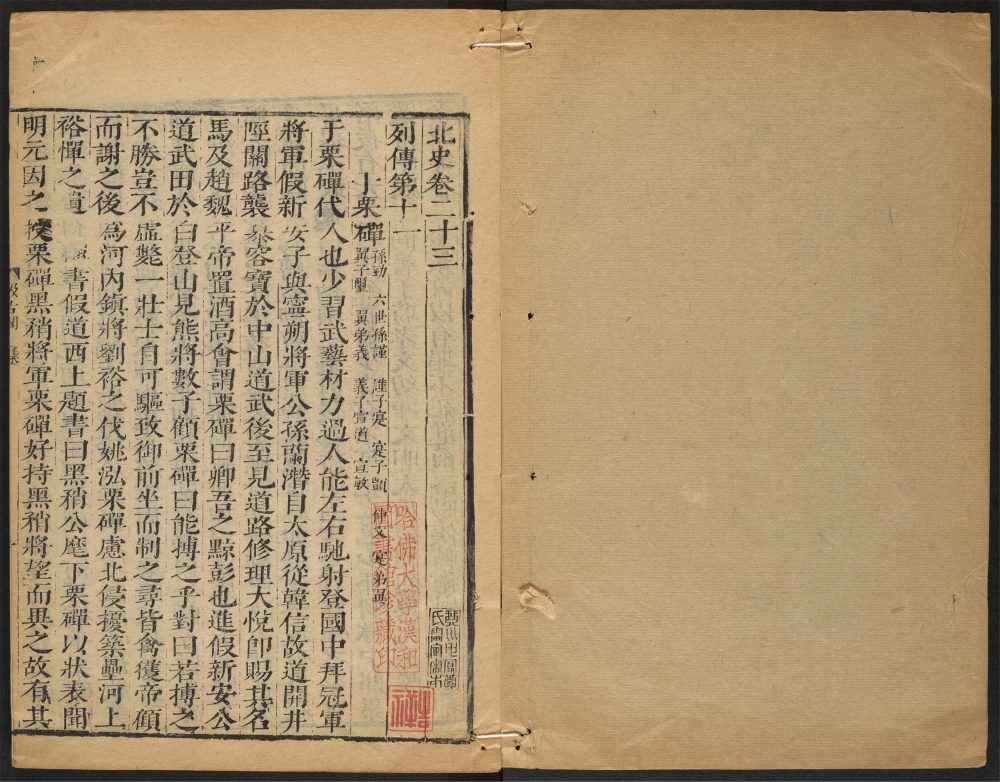 北史卷二十三
列傳第十一
于栗磾 孫勁 六世孫謹 謹子寔 寔子顗 仲文 寔弟翼
翼子璽 翼弟義 義子宣道 宣敏
于栗磾代人也少習武藝材力過人能左右馳射登國中拜冠軍
將軍假新安子與寧朔將軍公孫蘭潛自太原從韓信故道開井
陘關路襲慕容寶於中山道武後至見道路修理大悅卽賜其名
馬及趙魏平帝置酒高會謂栗磾曰卿吾之黥彭也進假新安公
道武田於白登山見熊將數子顧栗磾曰能搏之乎對曰若搏之
不勝豈不虛斃一壯士自可驅致御前坐而制之尋皆禽獲帝顧
而謝之後爲河內鎮將劉裕之伐姚泓栗磾慮北侵擾築壘河上
裕憚之遺書假道西上題書曰黑矟公麾下栗磾以狀表聞
明元因之授栗磾黑矟將軍栗磾好持黑矟將望而異之故有其
哈佛大學漢和
圖書館珍藏印